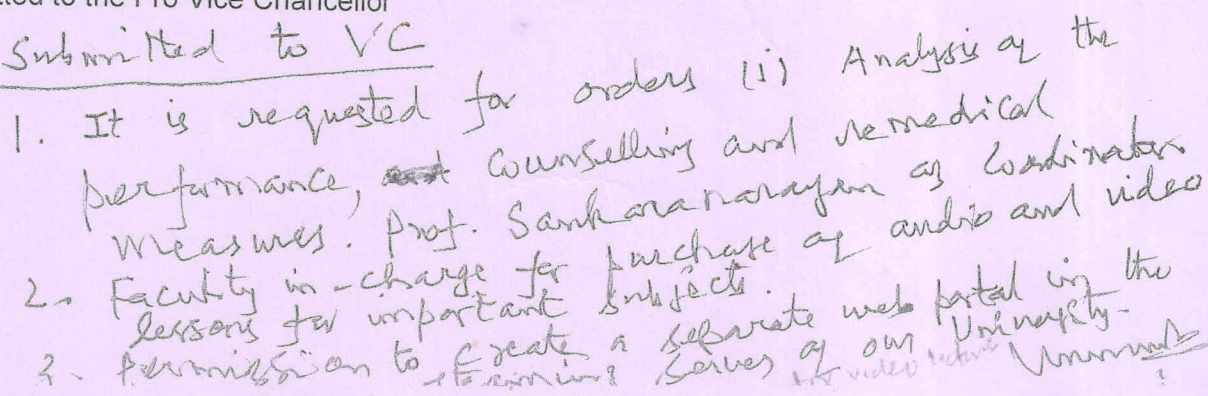 to the Pro Vice Chancellor
Submitted to VC
1. It is requested for orders (i) Analysis of the
performance, Counselling and remedical
measures. Prof. Sankaranarayan as Coordinator.
2. Faculty in-charge for purchase of audio and video
lessons for important subjects.
3. Permission to create a separate web portal in the
server of our University.
for video lecture